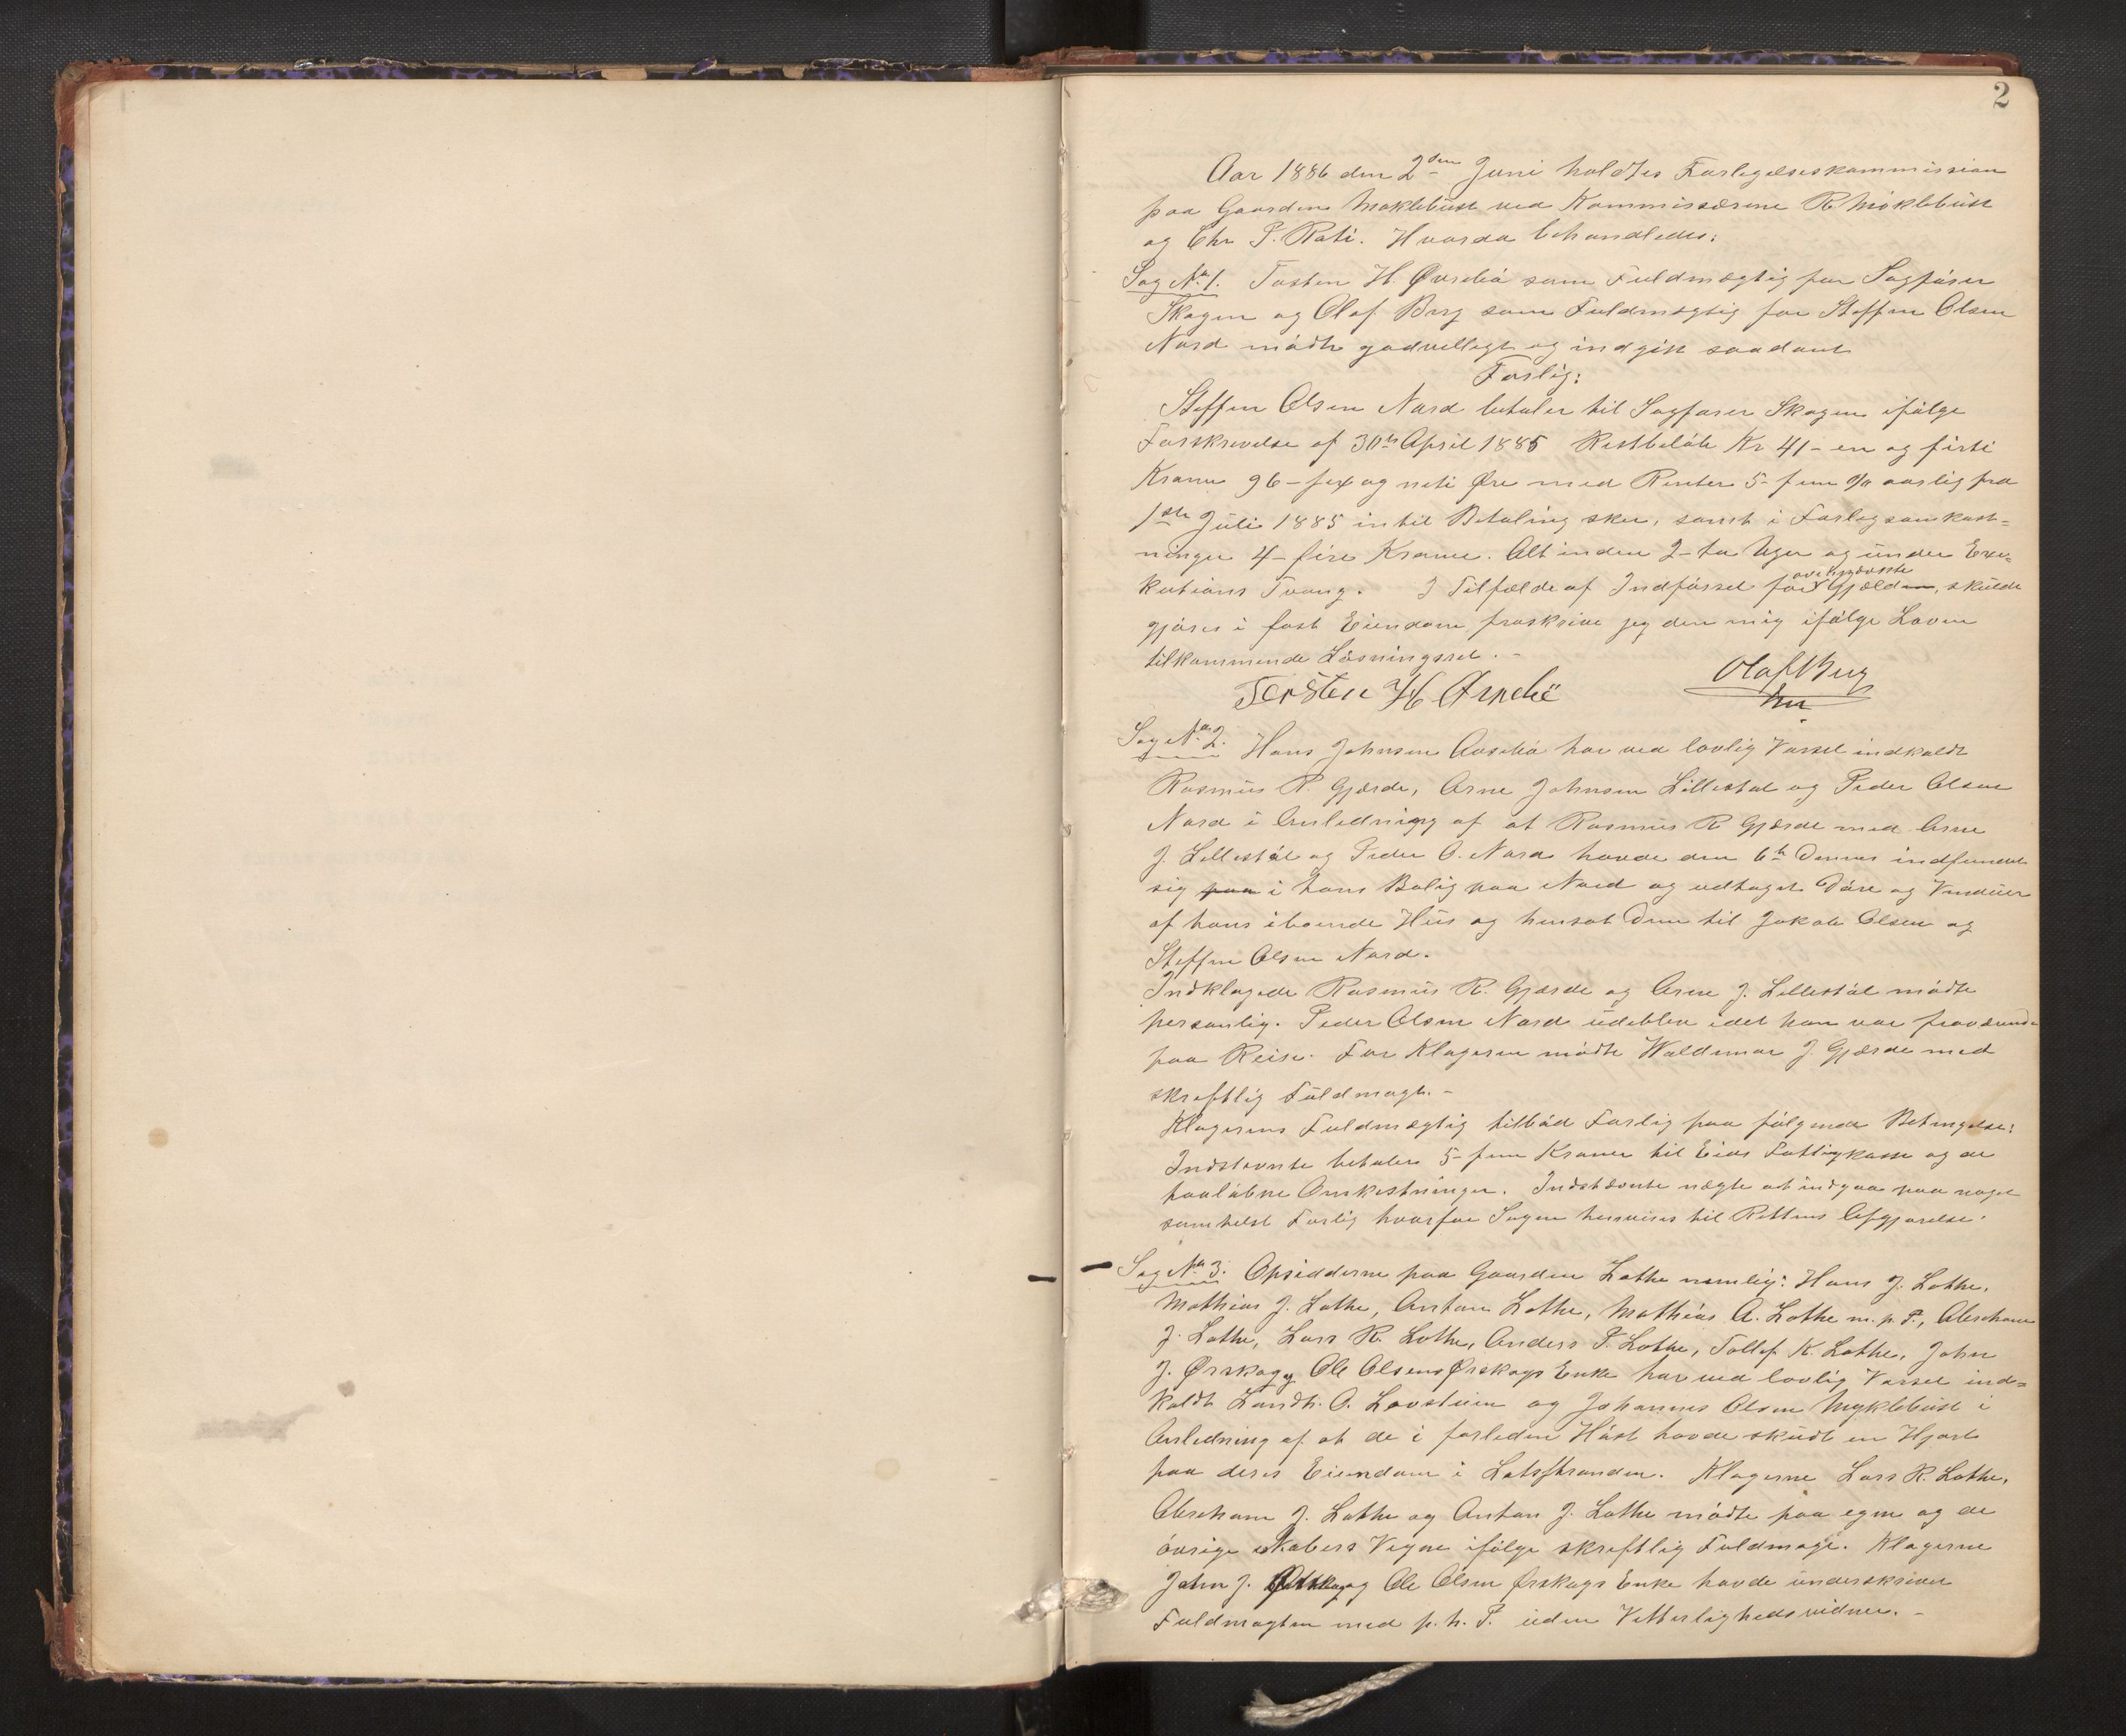 2
Aar 1886 den 2den Juni holdtes Forligelseskommission
paa Gaarden Møklebust ved Kommissærene R. Møklebust
og Chr P. Roti. Hvorda behandledes:
Sag No 1. Tosten H. Øvrebø som Fuldmægtig for Sagfører
Skagen og Olaf Berg som Fuldmægtig for Steffen Olsen
Nord mødte godvilligt og indgik saadant
Forlig:
Steffen Olsen Nord betaler til Sagfører Skagen ifølge
Forskrevelse af 30te April 1885 Restbeløb Kr 41 - en og firti
Kroner 96 - sex og niti Øre med Renter 5 - fem % aarlig fra
1ste Juli 1885 intil Betaling sker, samt i Forligsomkost=
ninger 4 - fire Kroner. Alt inden 2 - to Uger og under Exe=
kutions Tvang. I Tilfælde af Indførsel for ovennævnte Gjæld, skulde
gjøres i fast Eiendom fraskrive jeg den mig ifølge Loven
tilkommende Løsningsret. -
Torsten H Øvrebø Olaf Berg
Sag No 2. Hans Johnsen Øvrebø har ved lovlig Varsel indkaldt
Rasmus R. Gjærde, Arne Johnsen Lillestøl og Peder Olsen
Nord i Anledning af at Rasmus R Gjærde med Arne
J. Lillestøl og Peder O. Nord havde den 6te Dennes indfundet
sig paa i hans Bolig paa Nord og udtaget Døre og Vinduer
af hans iboende Hus og hensat Dem til Jakob Olsen og
Steffen Olsen Nord.
Indklagede Rasmus R. Gjærde og Arne J. Lillestøl mødte
personlig. Peder Olsen Nord udeblev idet han var fraværende
paa Reise. For Klageren mødte Waldemar J. Gjærde med
skreftlig Fuldmagt. -
Klagerens Fuldmægtig tilbød Forlig paa følgende Betingelse:
Indstevnte betaler 5 - fem Kroner til Eids Fattigkasse og de
paaløbne Omkostninger. Indstævnte nægte at indgaa paa noget
somhelst Forlig hvorfor Sagen henvises til Rettens Afgjørelse.
Sag No 3. Opsidderne paa Gaarden Lothe nemlig: Hans J. Lothe,
Mathias J. Lothe, Anton Lothe, Mathias A. Lothe m. p. P., Abraham
J. Lothe, Lars R. Lothe, Anders P. Lothe, Tollef K. Lothe, John
J. Ørskog og Ole Olsens Ørskogs Enke har ved lovlig Varsel ind=
kaldt Landh. O. Lovstuen og Johannes Olsen Myklebust i
Anledning af at de i forleden Høst havde skudt en Hjort
paa deres Eiendom i Lotsstranden. Klagerne Lars R. Lothe,
Abraham J. Lothe og Anton J. Lothe mødte paa egne og de
øvrige Vegne ifølge skreftlig Fuldmagt. Klagerne
John J. Ørskog og Ole Olsen Ørskogs Enke havde underskrivet
Fuldmagten med p. h. P. uden Vitterlighedsvidner. -